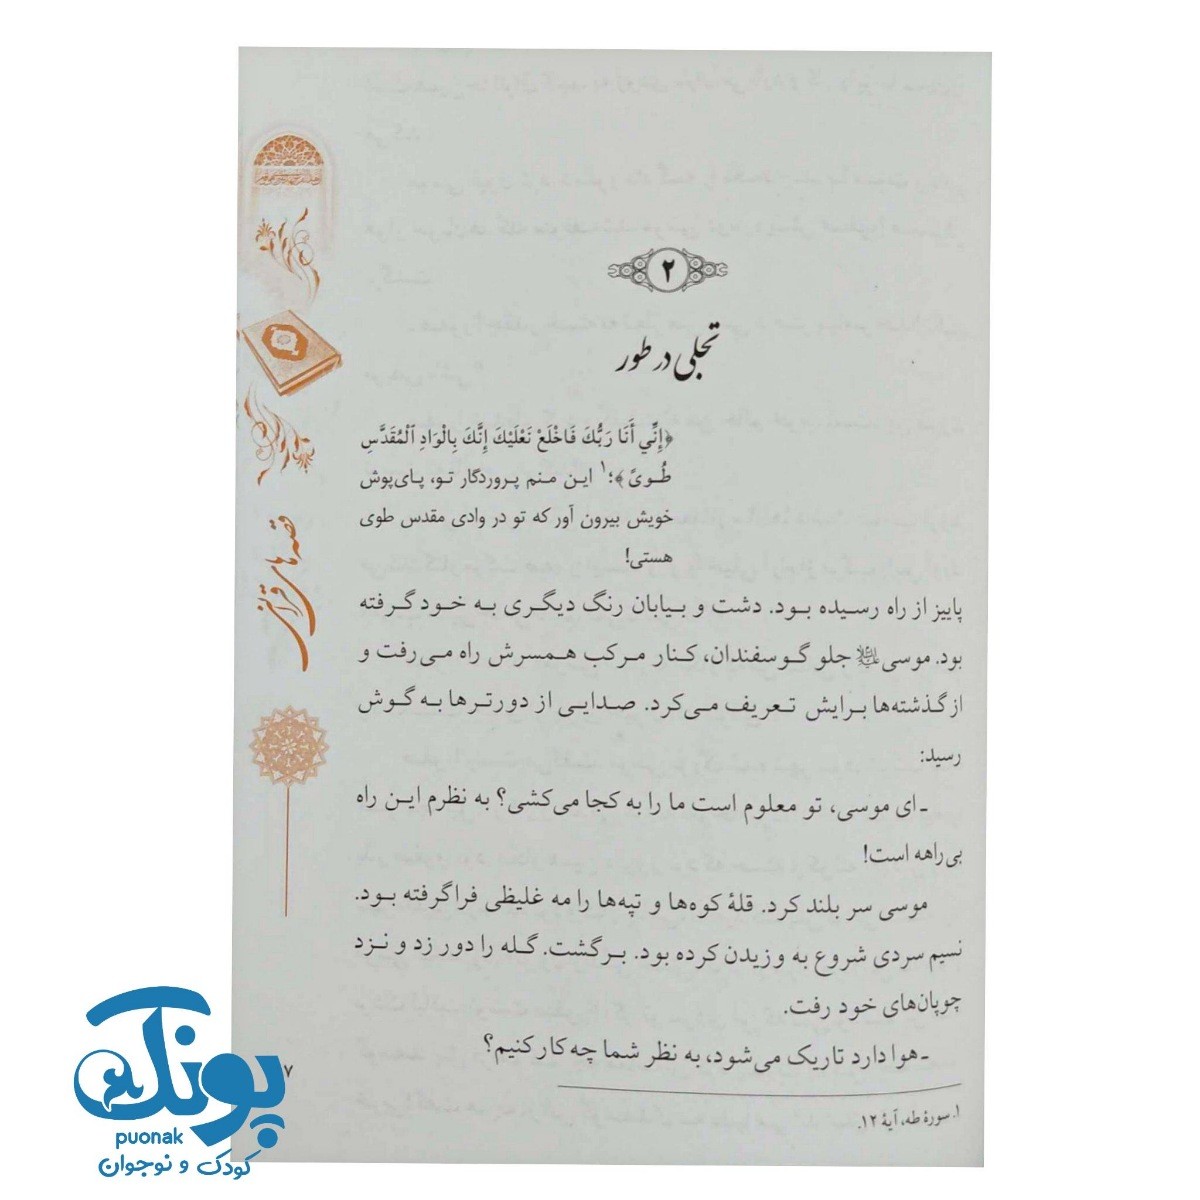 ۲
تجلی در طور
﴿إِنِّي أَنَا رَبُّكَ فَاخْلَعْ نَعْلَيْكَ إِنَّكَ بِالْوَادِ الْمُقَدَّسِ
طُوىً﴾؛۱ این منم پروردگار تو، پای‌پوش
خویش بیرون آور که تو در وادی مقدس طوی
هستی!
پاییز از راه رسیده بود. دشت و بیابان رنگ دیگری به خود گرفته
بود. موسی علیه‌السلام جلو گوسفندان، کنار مرکب همسرش راه می‌رفت و
از گذشته‌ها برایش تعریف می‌کرد. صدایی از دورترها به گوش
رسید:
ـ ای موسی، تو معلوم است ما را به کجا می‌کشی؟ به نظرم این راه
بی‌راهه است!
موسی سر بلند کرد. قلهٔ کوه‌ها و تپه‌ها را مه غلیظی فراگرفته بود.
نسیم سردی شروع به وزیدن کرده بود. برگشت. گله را دور زد و نزد
چوپان‌های خود رفت.
ـ هوا دارد تاریک می‌شود، به نظر شما چه کار کنیم؟
۱. سورهٔ طه، آیهٔ ۱۲.
قصه‌های قرآنی
۷
پونک
puonak
کودک و نوجوان